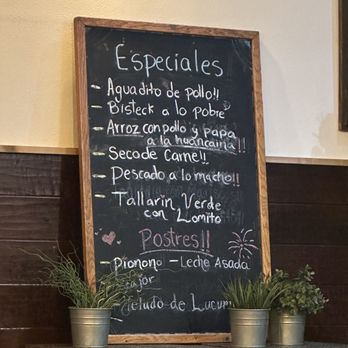 Especiales
- Aguadito de pollo!!
- Bisteck a lo pobre
- Arroz con pollo y papa
a la huancaina!!
- Seco de Carne!!
- Descado a lo macho!!
- Tallarin Verde
con Lomito
Postres!!
- Pionono - Leche Asada
de Lucum